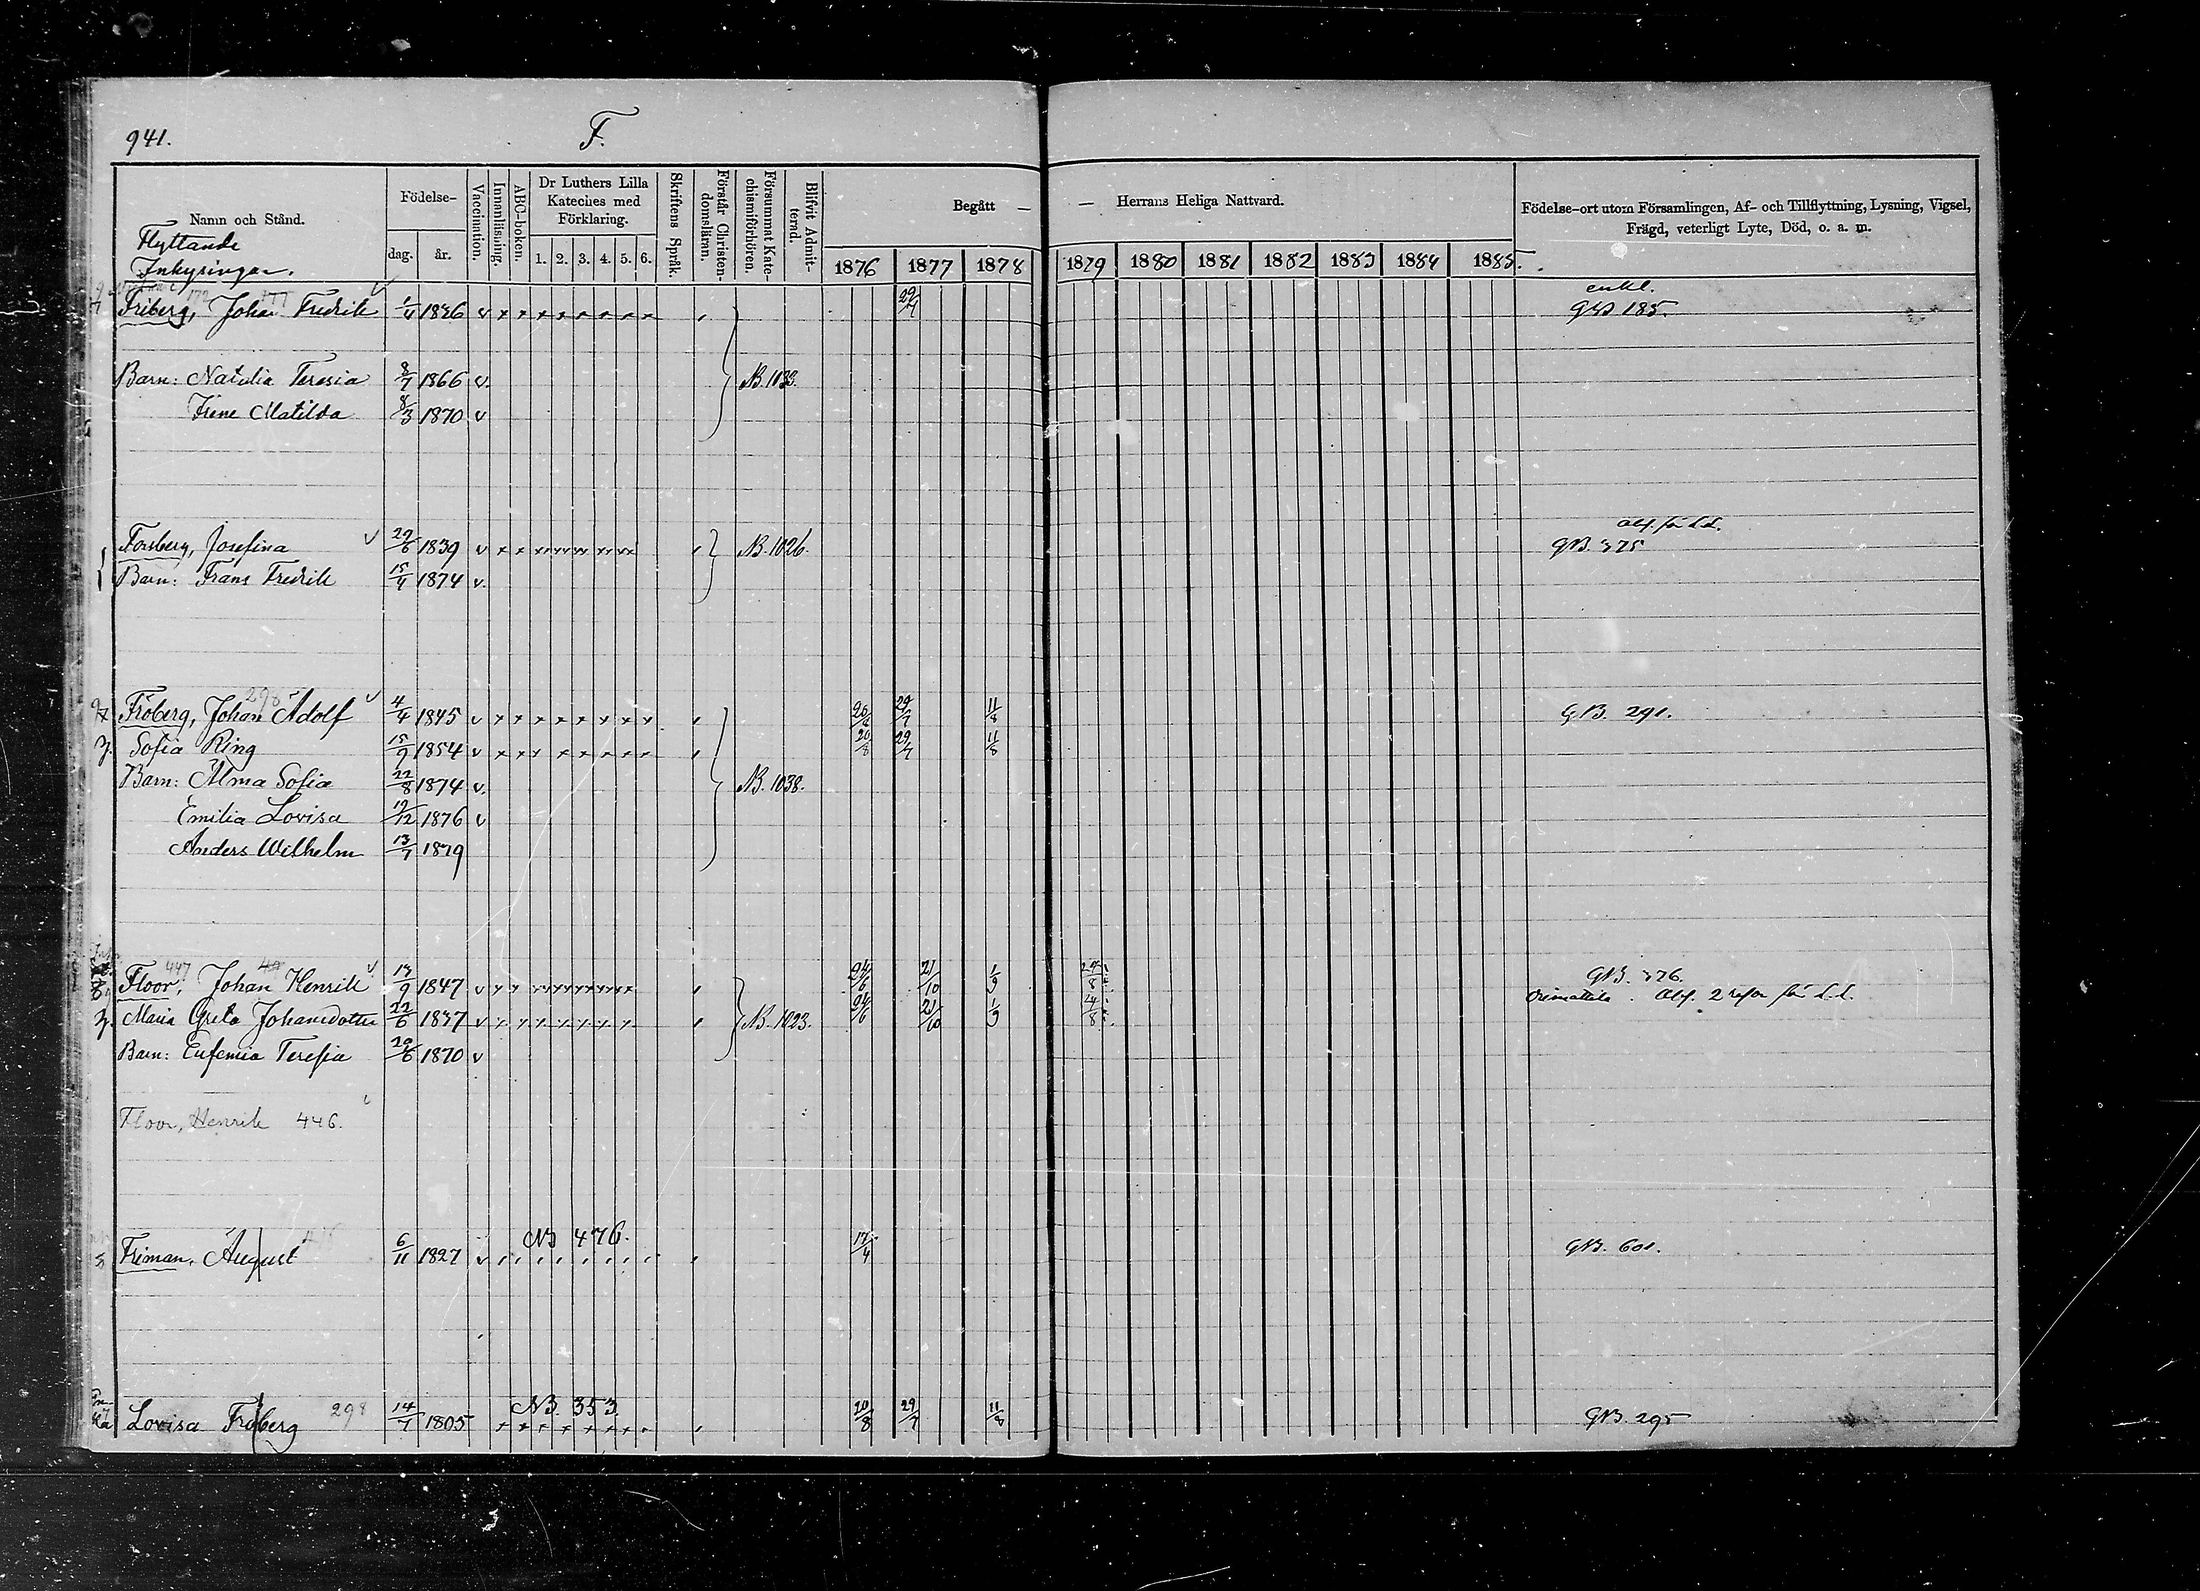 941.
F.
Namn och Stånd.
Flyttande
Inhysingar.
Födelse-
dag.
år.
Vaccination.
Innanläsning.
ABC-boken.
Dr Luthers Lilla
Kateches med
Förklaring.
1. 2. 3. 4. 5. 6.
Skriftens Språk.
Förstår Christen-
domsläran.
Försummat Kate-
chismiförhören.
Blifvit Admit-
terad.
Begått —
— Herrans Heliga Nattvard.
1876 1877 1878 1879 1880 1881 1882 1883 1884 1885.
Födelse-ort utom Församlingen, Af- och Tillflyttning, Lysning, Vigsel,
Frägd, veterligt Lyte, Död, o. a. m.
enkl.
Friberg, Johan Fredrik 1836 v 29/7 GB 185.
Barn: Natalia Teresia 8/7 1866 v. NB. 1033.
Irene Matilda 8/3 1870 v
Forsberg, Josefina v 29/6 1839 v NB. 1026. GB. 375
Barn: Frans Fredrik 15/4 1874 v.
298
Fröberg, Johan Adolf v 4/4 1845 v 29/7 11/8 GB. 291.
Sofia Ring 15/9 1854 v 20/8 29/7 11/8
Barn: Alma Sofia 22/8 1874 v. NB. 1038.
Emilia Lovisa 19/12 1876 v
Anders Wilhelm 13/7 1879
447
Floor, Johan Henrik v 1847 v 24/6 21/10 1/9 GB. 376.
Maria Greta Johansdotter 22/6 1837 v NB. 1023. 24/6 21/10 1/9 4/8
Barn: Eufemia Teresia 29/6 1870 v
Floor, Henrik 446.
NB 476.
Friman, August 6/11 1827 v 17/4 GB. 601.
NB. 353
Lovisa Fröberg 298 14/7 1805 20/8 29/7 11/8 GB. 295